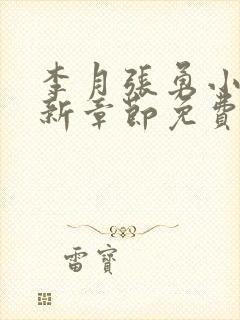 李月張勇小
新章節免費
雷寶